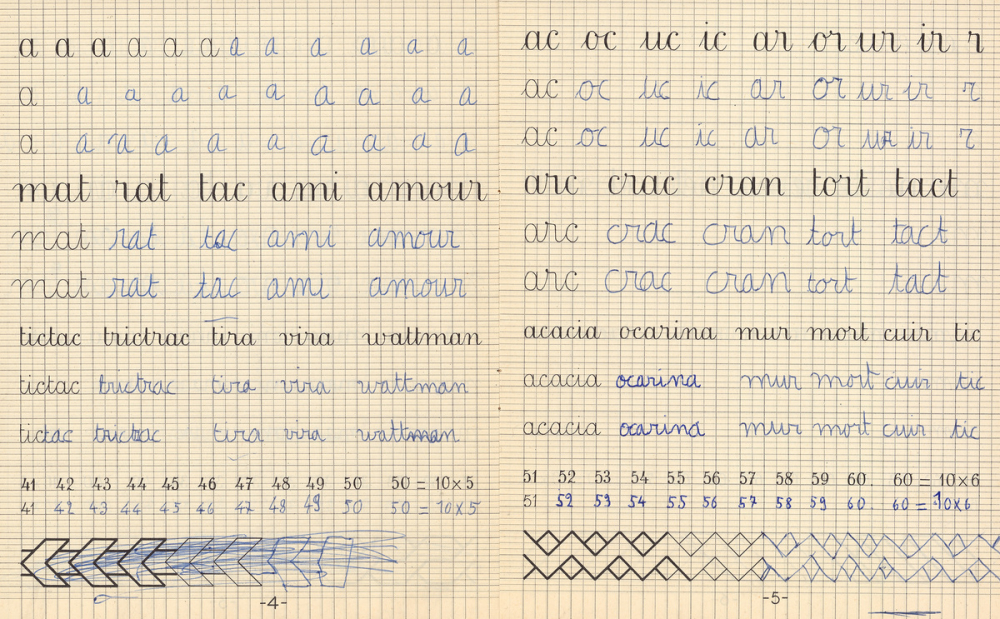 a a a a a a a a a a a a
a a a a a a a a a a
a a a a a a a a a a
mat rat tac ami amour
mat rat tac ami amour
mat rat tac ami amour
tictac trictrac tira vira wattman
tictac trictrac tira vira wattman
tictac trictrac tira vira wattman
41 42 43 44 45 46 47 48 49 50 50 = 10×5
41 42 43 44 45 46 47 48 49 50 50 = 10×5
-4-
ac oc uc ic ar or ur ir r
ac oc uc ic ar or ur ir r
ac oc uc ic ar or ur ir r
arc crac cran tort tact
arc crac cran tort tact
arc crac cran tort tact
acacia ocarina mur mort cuir tic
acacia ocarina mur mort cuir tic
acacia ocarina mur mort cuir tic
51 52 53 54 55 56 57 58 59 60. 60 = 10×6
51 52 53 54 55 56 57 58 59 60. 60 = 10×6
-5-